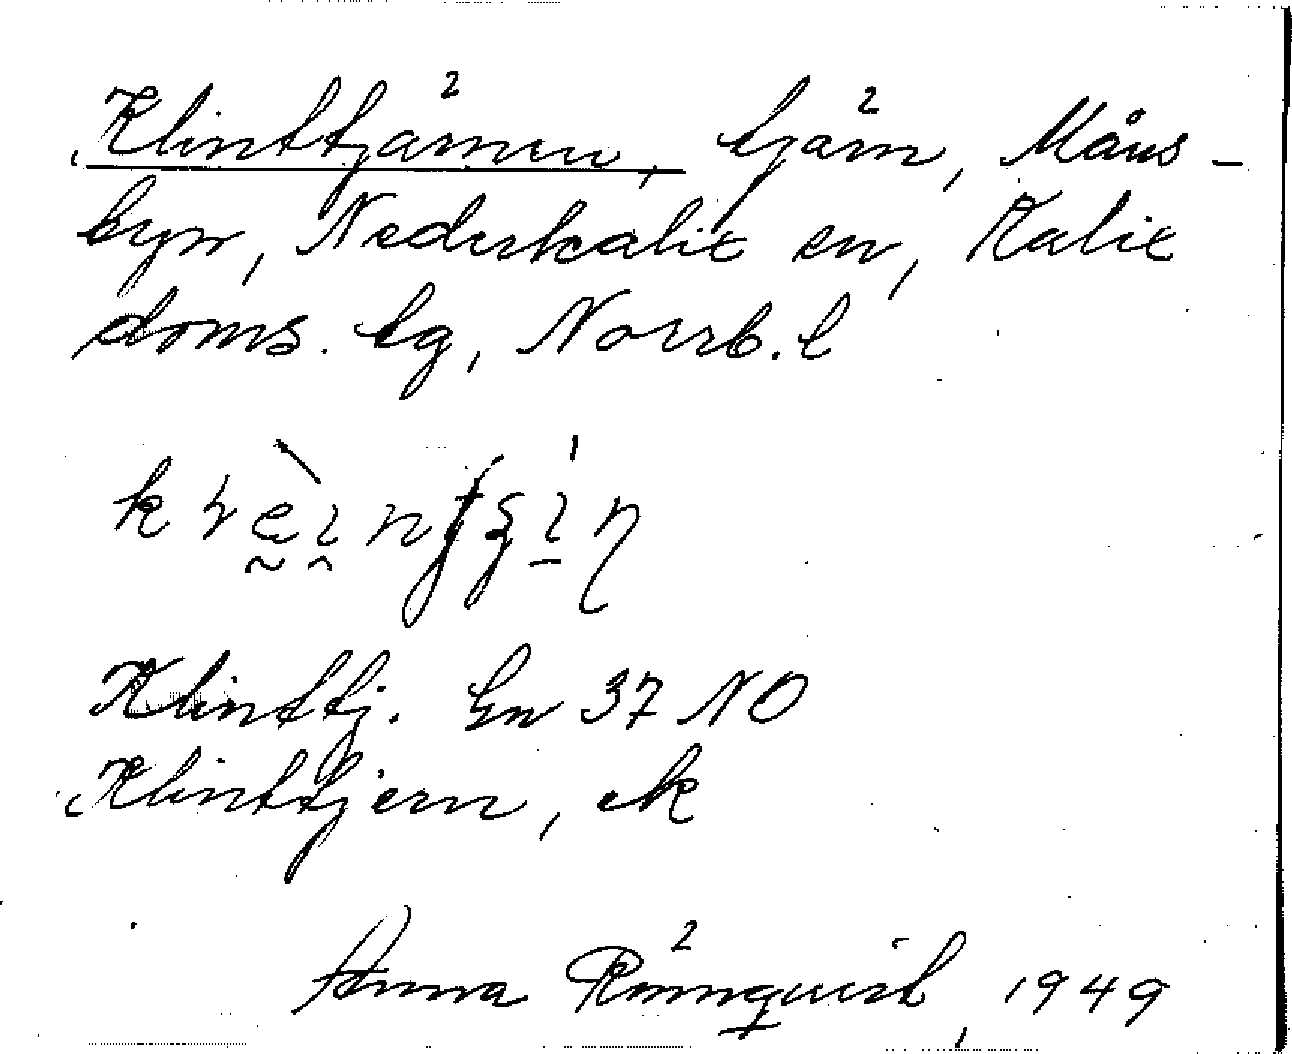 Klinttjärnen, tjärn, Måns-
byn, Nederkalix sn, Kalix
doms. tg, Norrb. l
Klinttj. Gn 37 NO
Klinttjern, ek
Anna Rönnquist, 1949